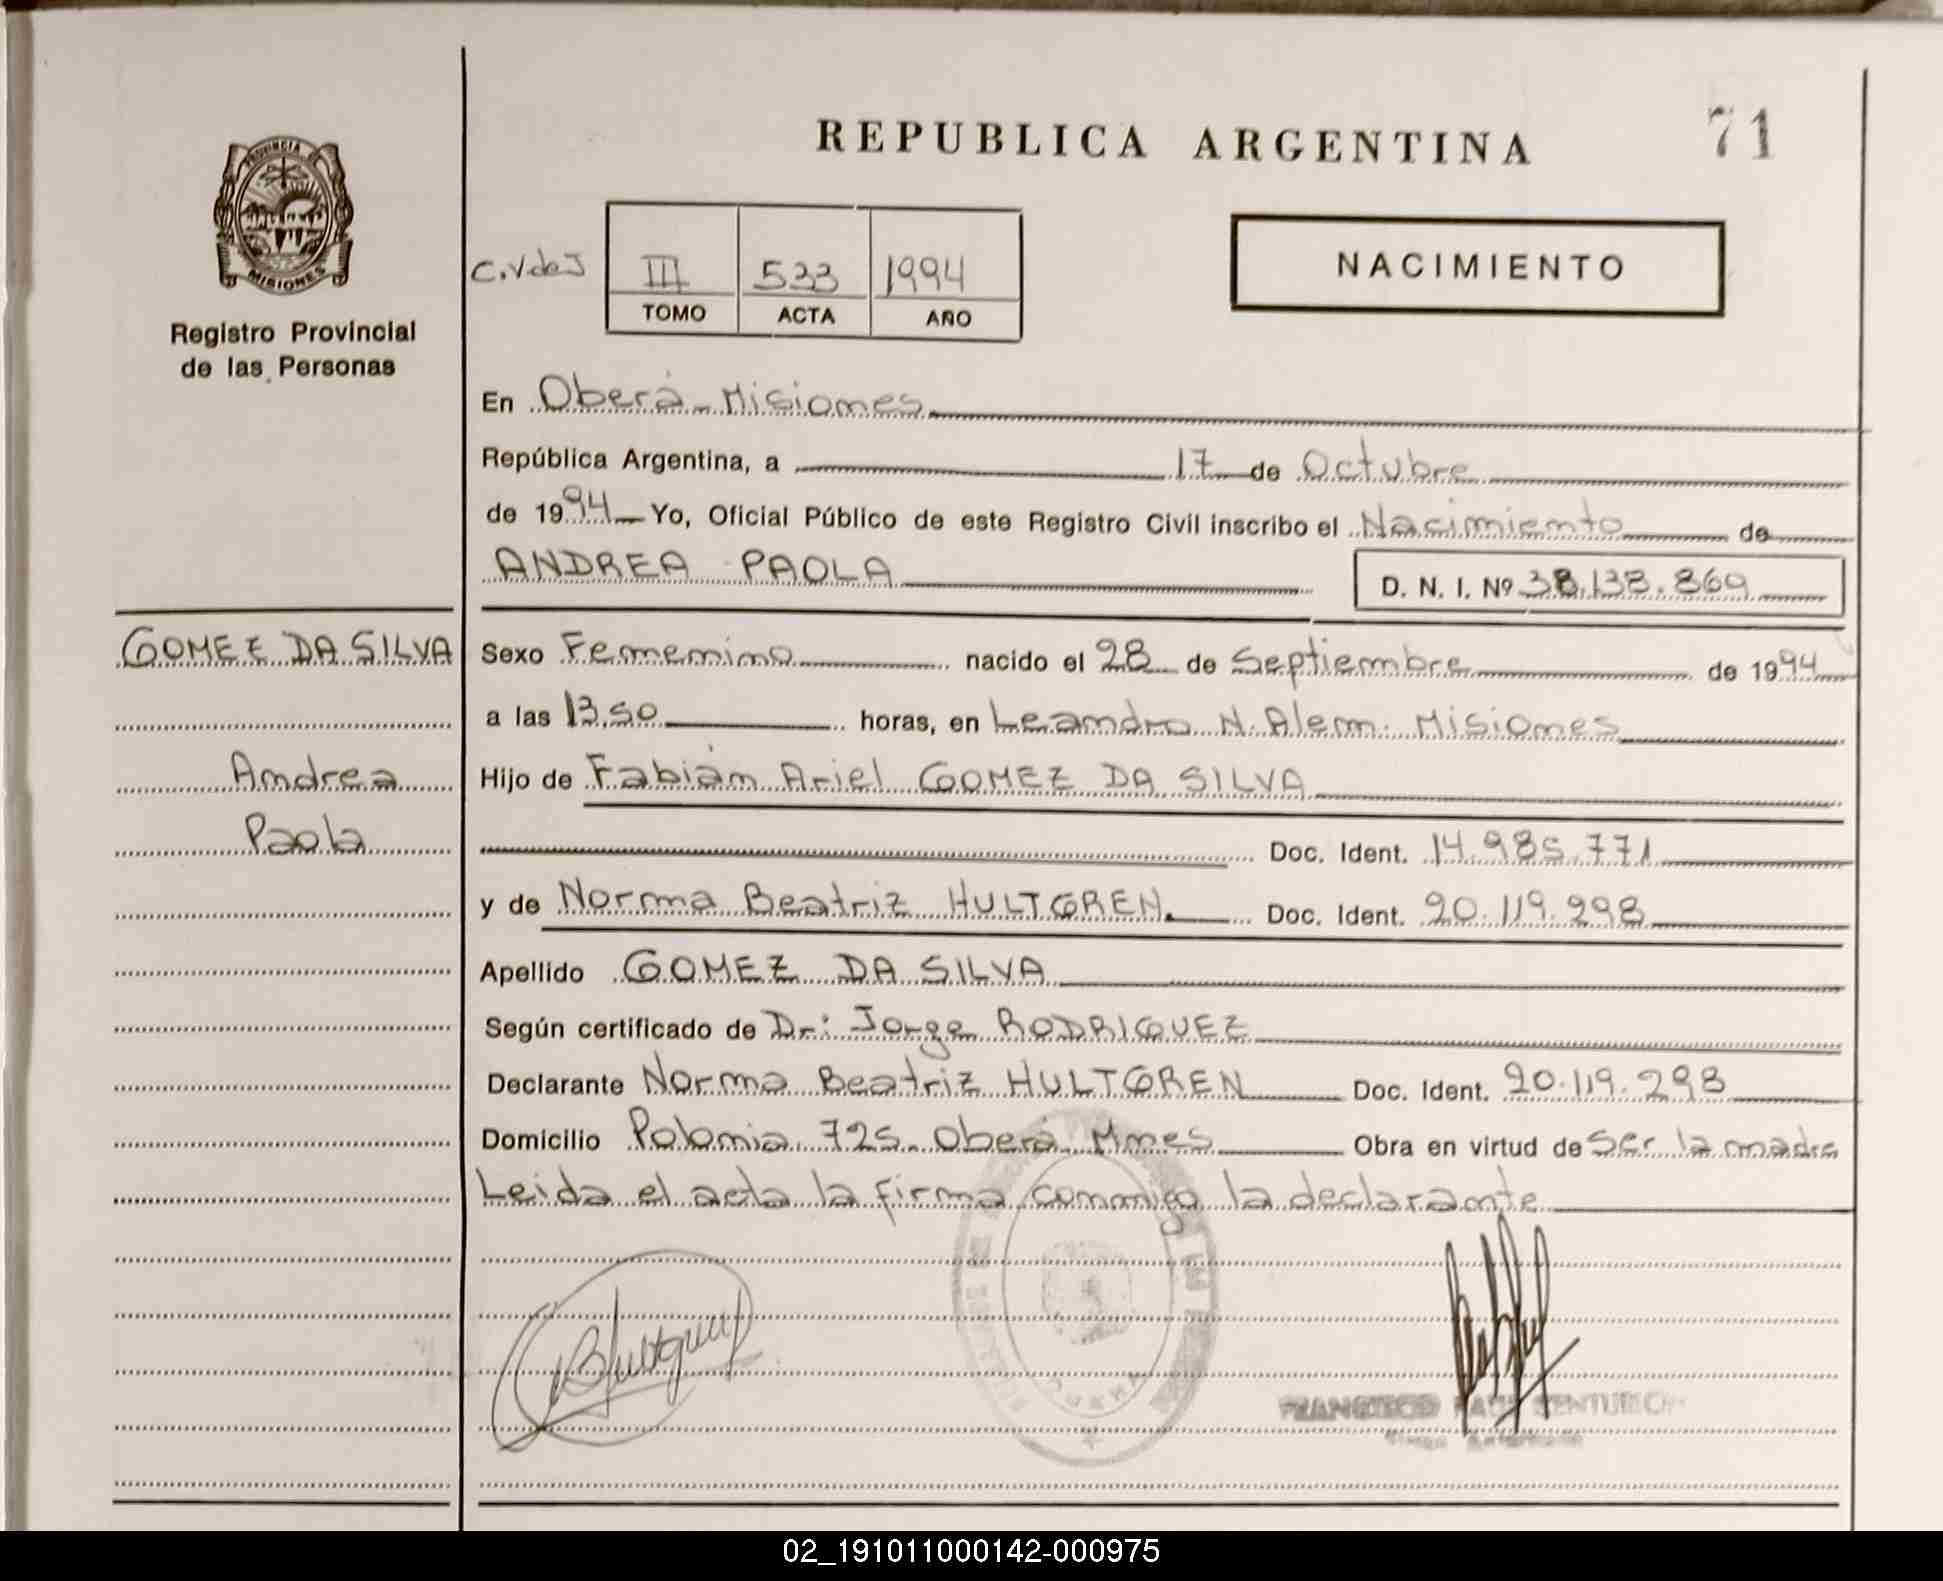 REPUBLICA ARGENTINA
71
PROVINCIA DE
MISIONES
Registro Provincial
de las Personas
C.V.deJ
III 533 1994
TOMO ACTA AÑO
NACIMIENTO
En Oberá - Misiones
República Argentina, a 17 de Octubre
de 1994 Yo, Oficial Público de este Registro Civil inscribo el Nacimiento de
ANDREA PAOLA D. N. I. Nº 38.138.869
GOMEZ DA SILVA
Andrea
Paola
Sexo Femenino nacido el 28 de Septiembre de 1994
a las 13.50 horas, en Leandro N. Alem. Misiones
Hijo de Fabián Ariel GOMEZ DA SILVA
Doc. Ident. 14.985.771
y de Norma Beatriz HULTGREN. Doc. Ident. 20.119.298
Apellido GOMEZ DA SILVA
Según certificado de Dr: Jorge RODRIGUEZ
Declarante Norma Beatriz HULTGREN Doc. Ident. 20.119.298
Domicilio Polonia 725 - Oberá Mnes Obra en virtud de Ser la madre
Leida el acta la firma conmigo la declarante
FRANCISCO
02_191011000142-000975